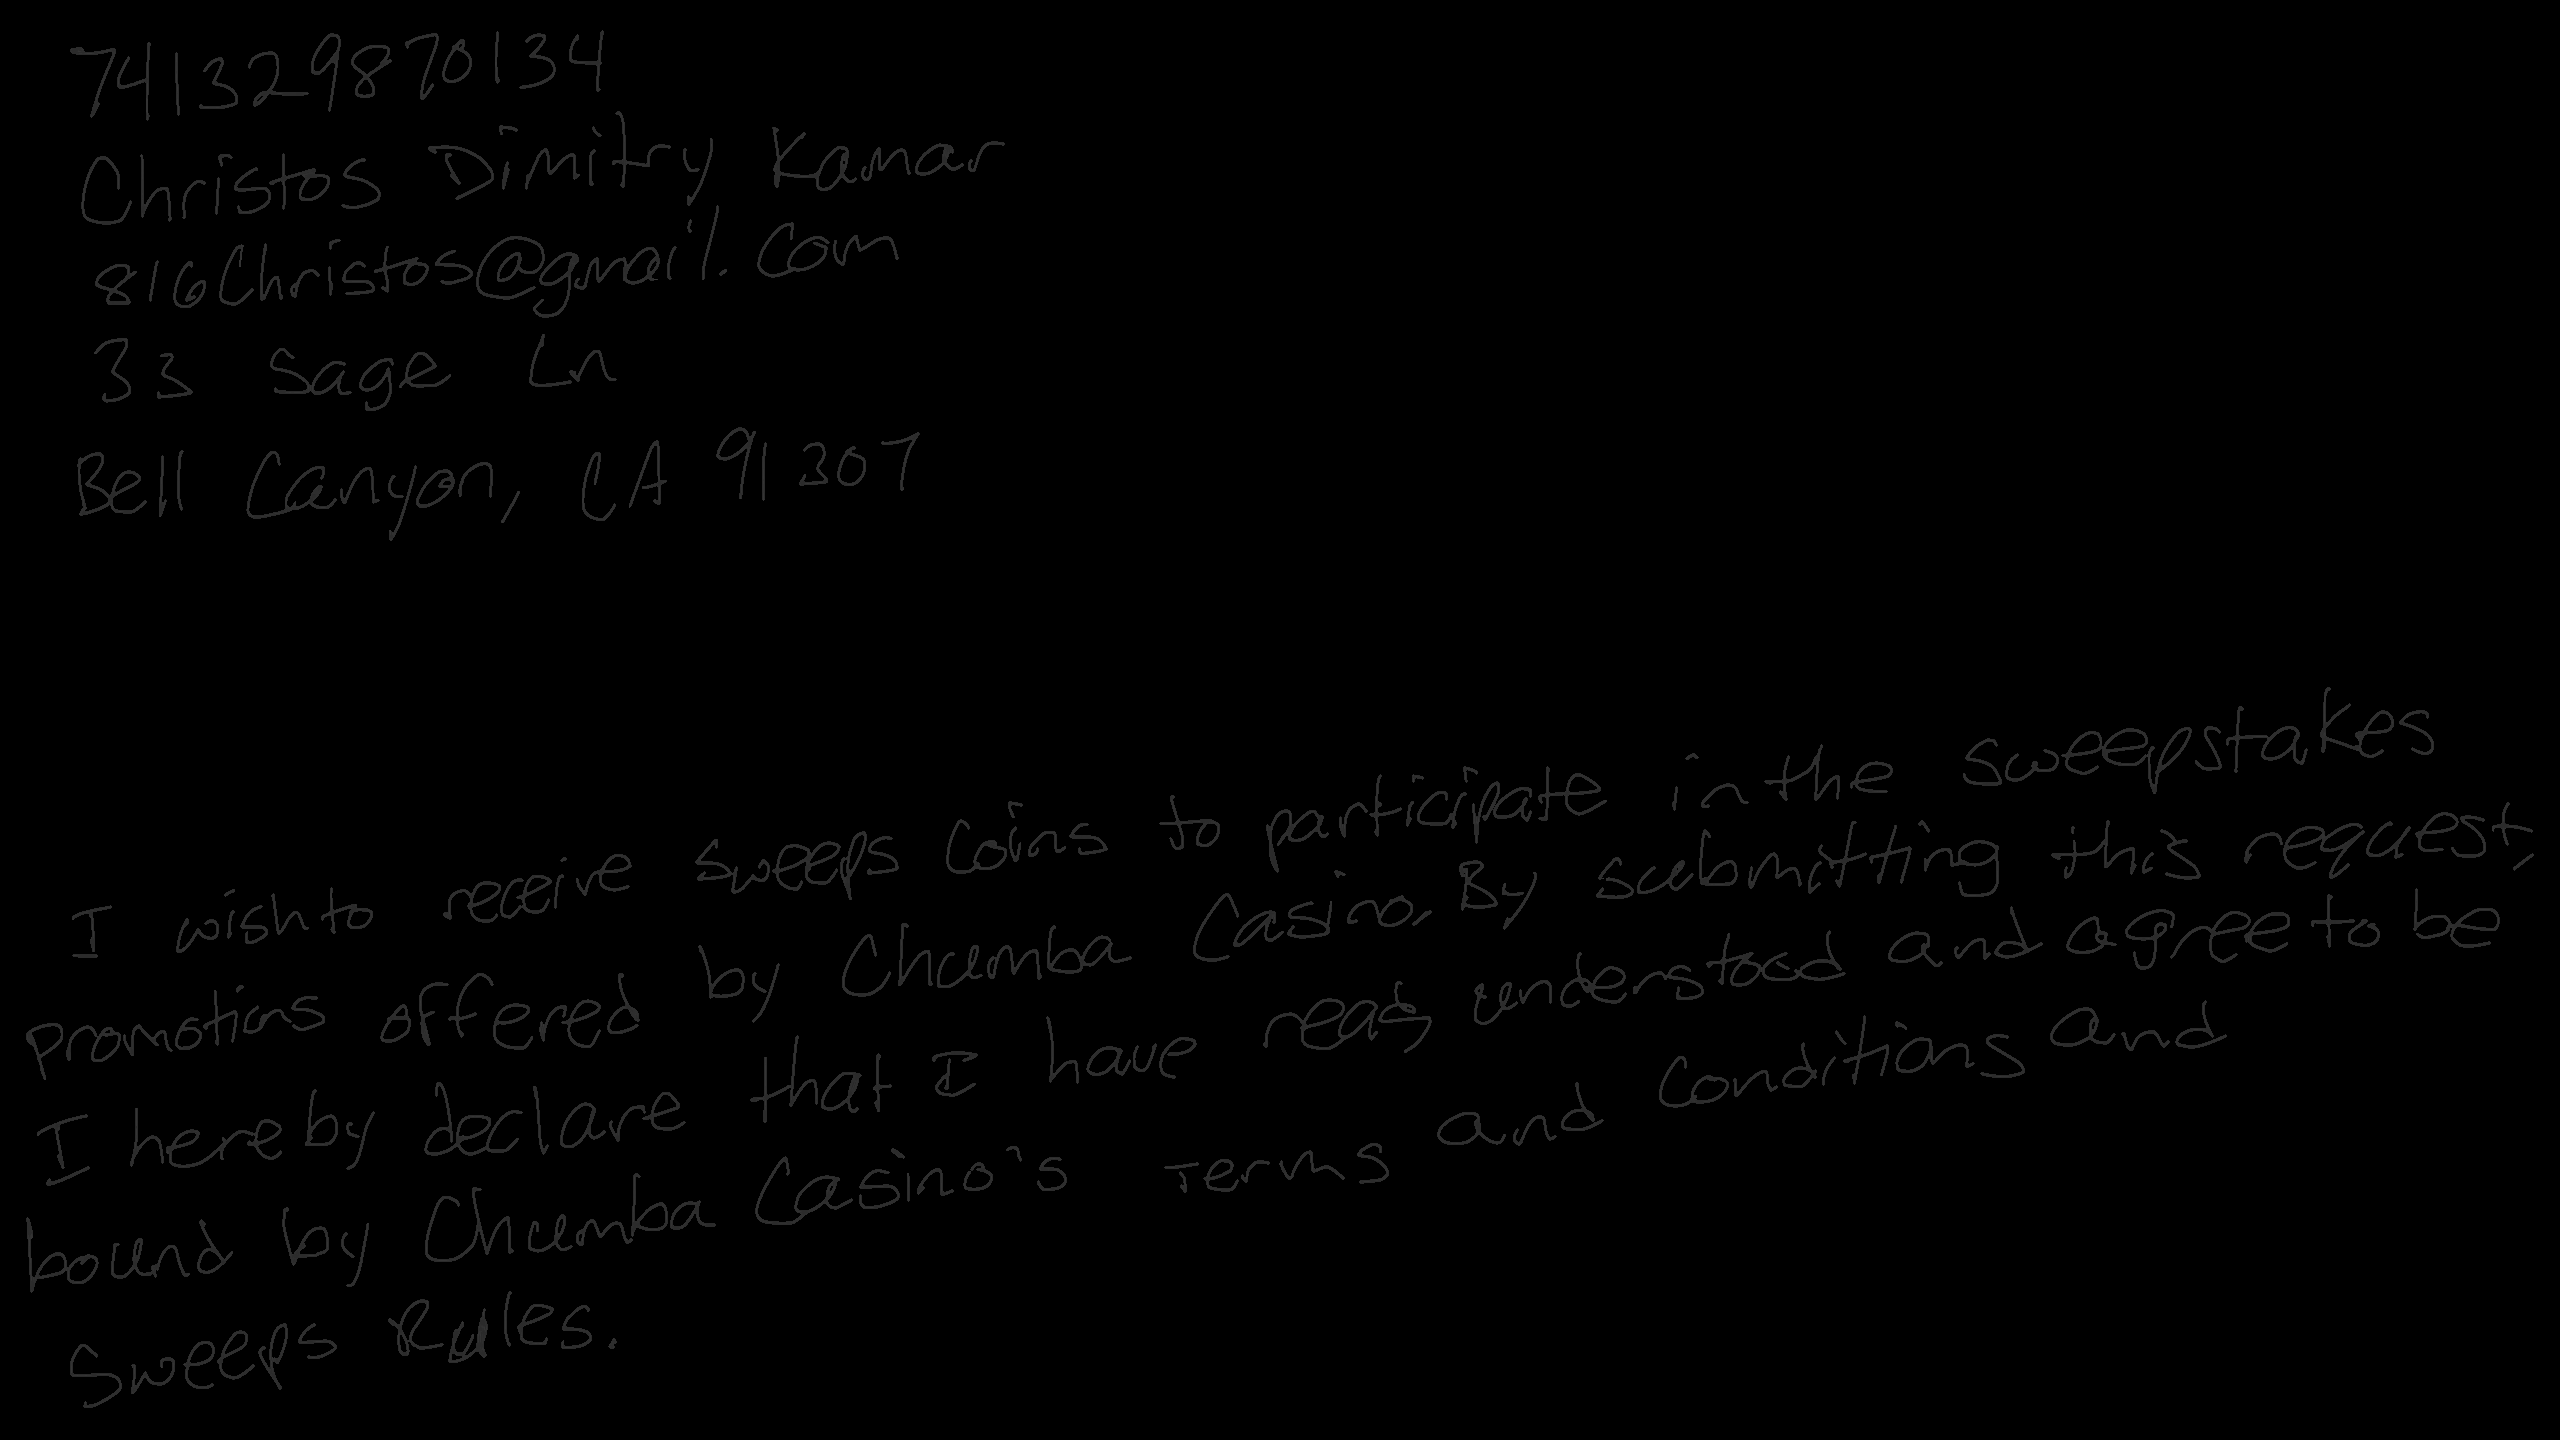 741329870134
Christos Dimitry Kamar
816Christos@gmail.com
33 Sage Ln
Bell Canyon, CA 91307
I wish to receive sweeps coins to participate in the sweepstakes
promotions offered by Chumba Casino. By submitting this request,
I hereby declare that I have read, understood and agree to be
bound by Chumba Casino's Terms and Conditions and
Sweeps Rules.